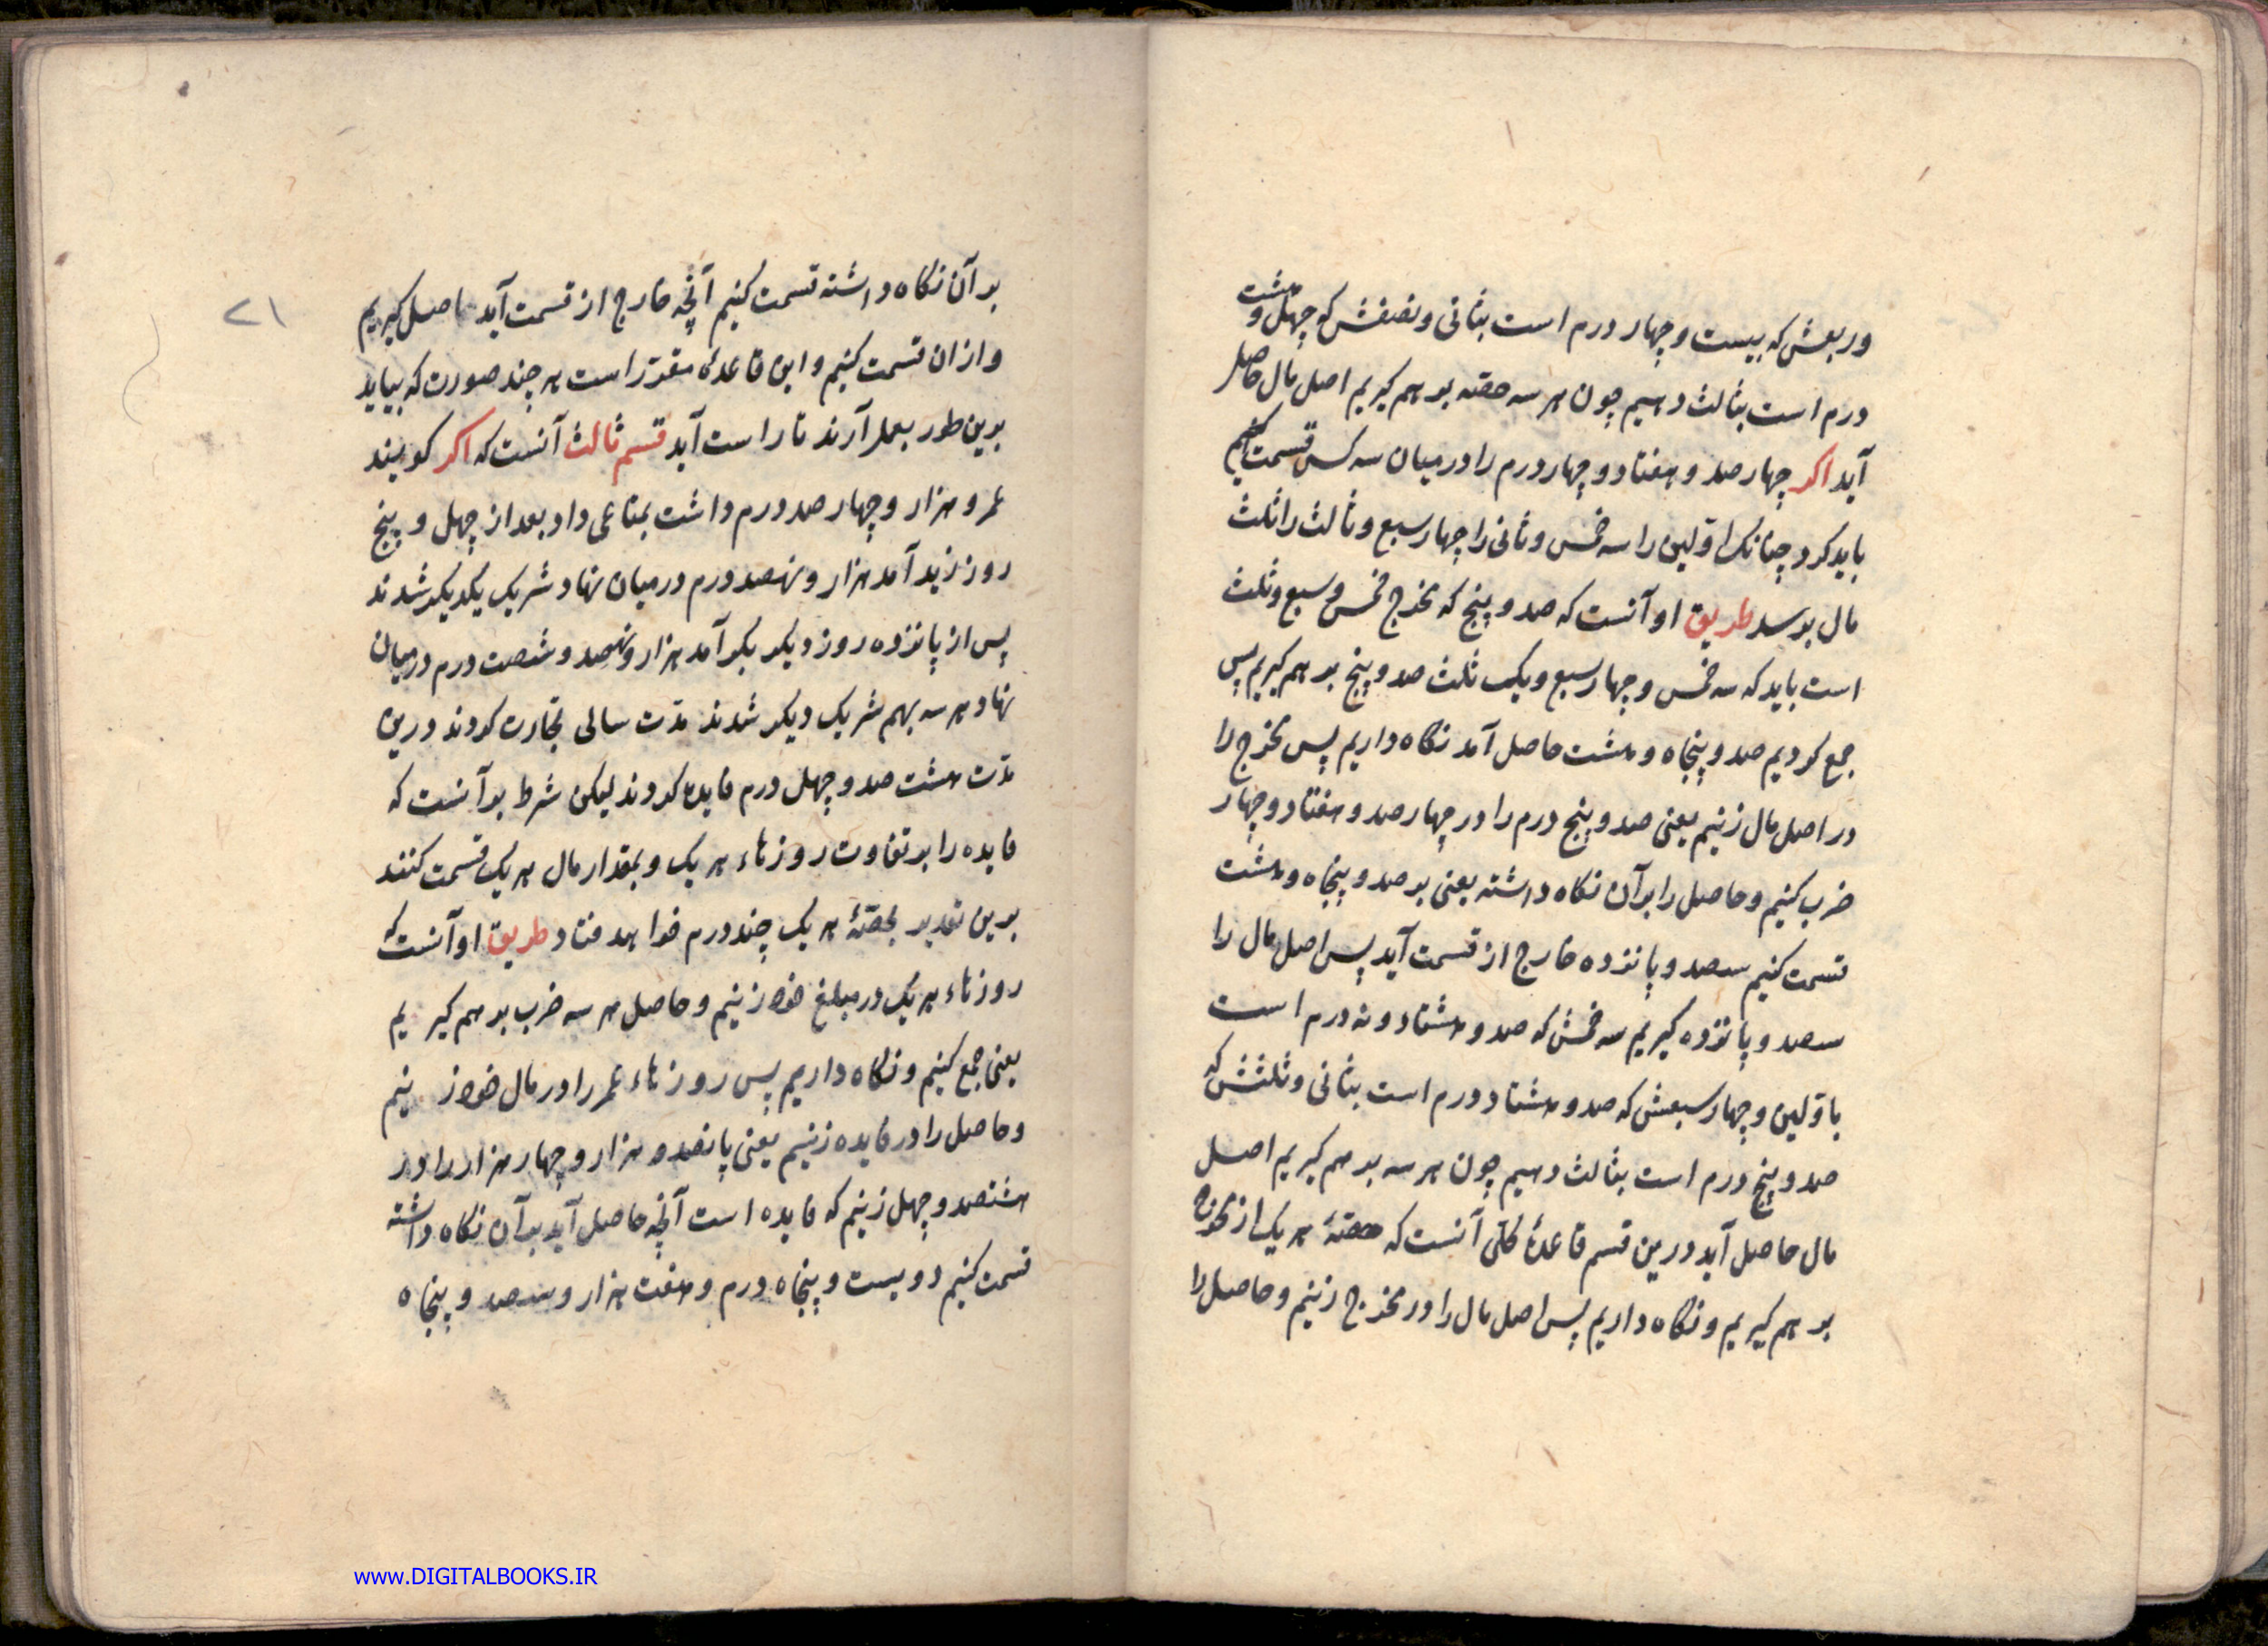 وربعش که بیست و چهار درم است بثانی و نصفش که چهل و هشت
درم است بثالث دهیم چون هر سه حصّه بر هم گیریم اصل مال حاصل
آید اکر چهار صد و هفتاد و چهار درم را درمیان سه کس قسمت کنیم
باید کرد چنانک اوّلین را سه خمس و ثانی را چهار سبع و ثالث را ثلث
مال برسد طریق او آنست که صد و پنج که مخرج خمس و سبع و ثلث
است باید که سه خمس و چهار سبع و یک ثلث صد و پنج بر هم گیریم پس
جمع کردیم صد و پنجاه و هشت حاصل آمد نکاه داریم پس مخرج را
در اصل مال زنیم یعنی صد و پنج درم را در چهار صد و هفتاد و چهار
ضرب کنیم و حاصل را بر آن نکاه داشته یعنی بر صد و پنجاه و هشت
قسمت کنیم سصد و پانزده خارج از قسمت آید پس اصل مال را
سصد و پانزده کیریم سه خمسش که صد و هشتاد و نه درم است
باوّلین و چهار سبعش که صد و هشتاد درم است بثانی و ثلثش که
صد و پنج درم است بثالث دهیم چون هر سه بر هم کیریم اصل
مال حاصل آید درین قسم قاعدهٔ کلّی آنست که حصّهٔ هر یک از مخرج
بر هم کیریم و نکاه داریم پس اصل مال را در مخرج زنیم و حاصل را
۲۱
بر آن نکاه داشته قسمت کنیم آنچه خارج از قسمت آید حاصل کیریم
و ازان قسمت کنیم و این قاعدهٔ مقرّر است هر چند صورت که بیاید
برین طور بعمل آرند تا راست آید قسم ثالث آنست که اکر کویند
عمرو هزار و چهار صد درم داشت بمتاعی داد بعد از چهل و پنج
روز زید آمد هزار و نهصد درم درمیان نهاد شریک یکدیکر شدند
پس از پانزده روز دیکر بکر آمد هزار و نهصد و شصت درم درمیان
نهاد هر سه بهم شریک دیکر شدند مدّت سالی تجارت کردند درین
مدّت هشت صد و چهل درم فایده کردند لیکن شرط بر آنست که
فایده را بر تفاوت روزهاء هر یک و بمقدار مال هر یک قسمت کنند
برین تقدیر بحصّهٔ هر یک چند درم خواهد فتاد طریق او آنست که
روزهاء هر یک در مبلغ خود زنیم و حاصل هر سه ضرب بر هم کیریم
یعنی جمع کنیم و نکاه داریم پس روزهاء عمر را در مال خود زنیم
و حاصل را در فایده زنیم یعنی پانصد و هزار و چهار هزار را در
هشتصد و چهل زنیم که فایده است آنچه حاصل آید بر آن نکاه داشته
قسمت کنیم دویست و پنجاه درم و هفت هزار و سصد و پنجاه
www.DIGITALBOOKS.IR